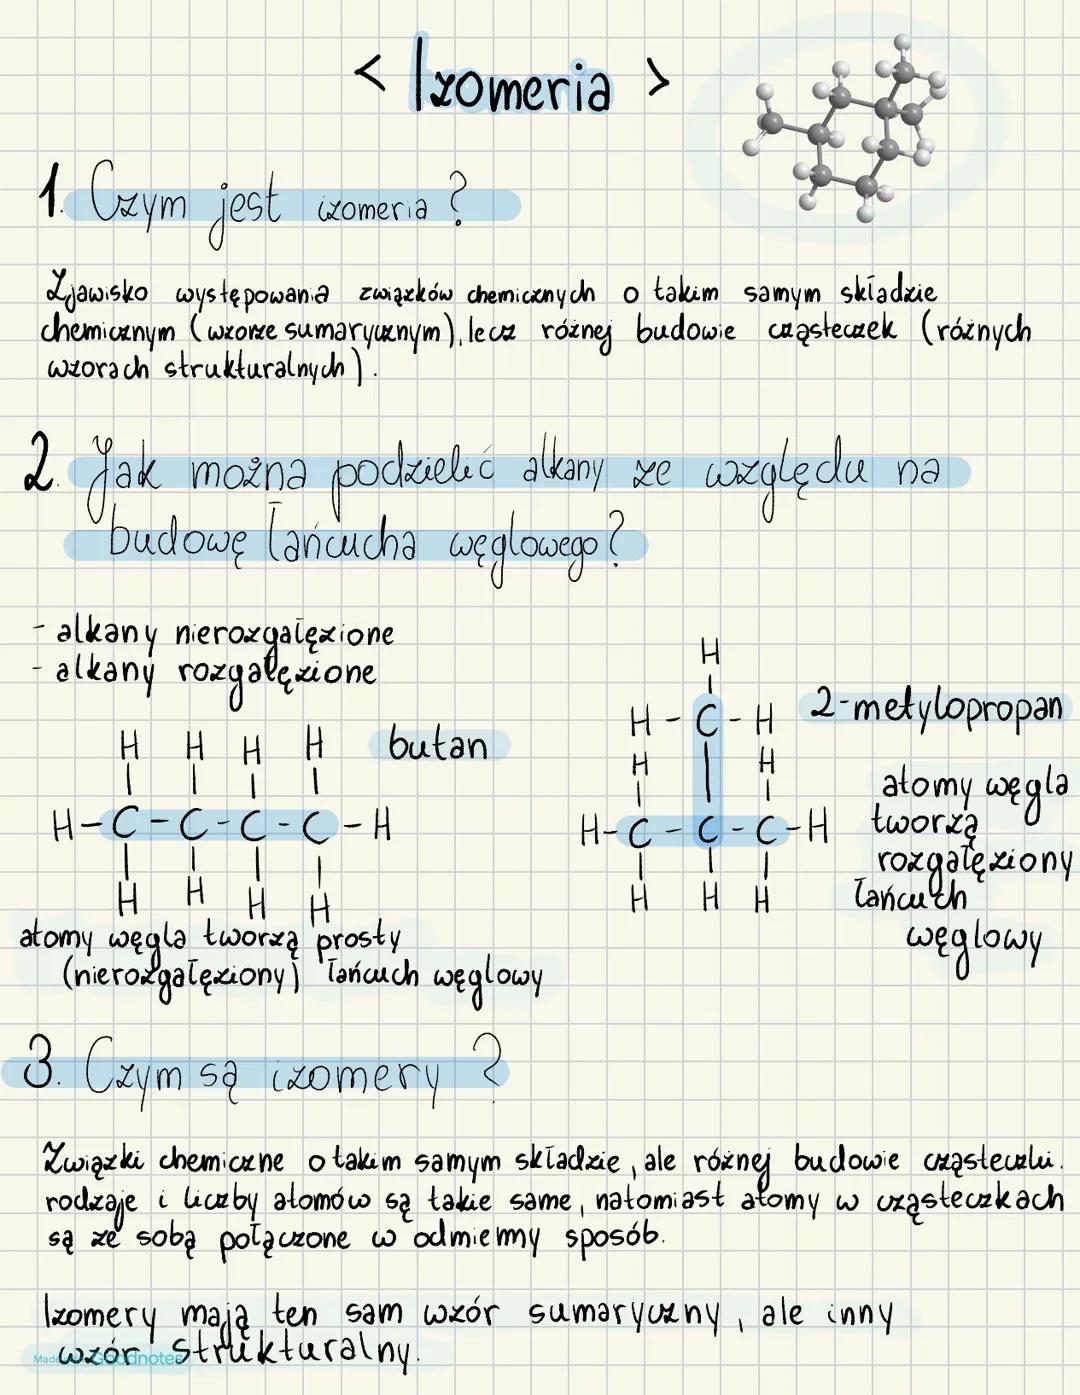 < Izomeria >
1. Czym jest izomeria?
Zjawisko występowania związków chemicznych o takim samym składzie
chemicznym (wzorze sumarycznym), lecz różnej budowie cząsteczek (różnych
wzorach strukturalnych).
2. Jak można podzielić alkany ze względu na
budowę łańcucha węglowego?
- alkany nierozgałęzione
- alkany rozgałęzione
butan
H H H H
H-C-C-C-C-H
H H H H
atomy węgla tworzą prosty
(nierozgałęziony) łańcuch węglowy
2-metylopropan
H
H-C-H
H H
H-C-C-C-H
H H H
atomy węgla
tworzą
rozgałęziony
łańcuch
węglowy
3. Czym są izomery?
Związki chemiczne o takim samym składzie, ale różnej budowie cząsteczki.
rodzaje i liczby atomów są takie same, natomiast atomy w cząsteczkach
są ze sobą połączone w odmienny sposób.
Izomery mają ten sam wzór sumaryczny, ale inny
wzór strukturalny.
Goodnotes